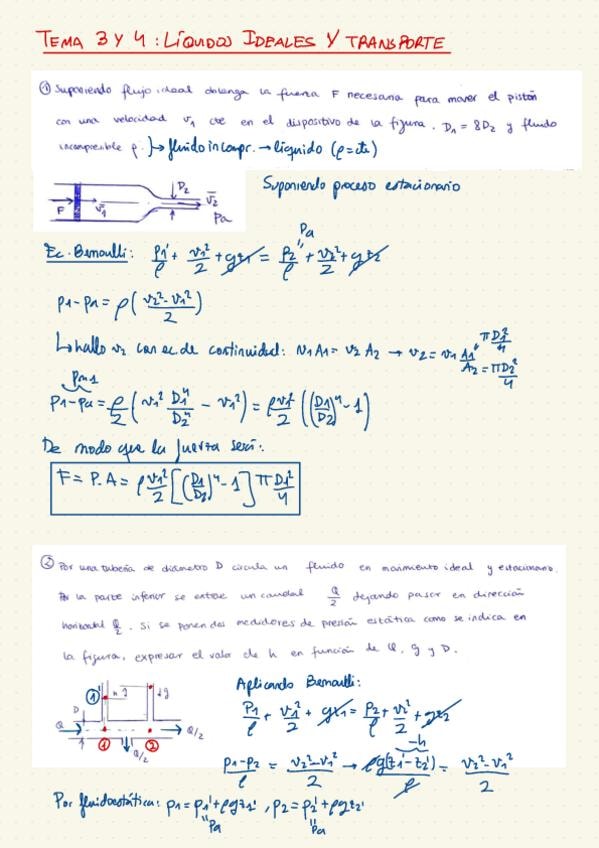 TEMA 3 Y 4: LÍQUIDOS IDEALES Y TRANSPORTE
① Suponiendo flujo ideal obtenga la fuerza F necesaria para mover el pistón
con una velocidad v₁ cte en el dispositivo de la figura. D₁ = 8D₂ y fluido
incompresible ρ. }→ fluido incompr. → líquido (ρ=cte)
Suponiendo proceso estacionario
F v̄₁ D₂ v̄₂ Pa
Ec. Bernoulli: P₁/ρ + v₁²/2 + gz₁ = P₂/ρ + v₂²/2 + gz₂
Pa
P₁-Pa = ρ((v₂²-v₁²)/2)
↳ hallo v₂ con ec. de continuidad: v₁A₁ = v₂A₂ → v₂ = v₁ A₁/A₂
πD₁²/4
= πD₂²/4
Pm1
P₁-Pa = ρ/2 (v₁² D₁⁴/D₂⁴ - v₁²) = ρv₁²/2 ((D₁/D₂)⁴ - 1)
De modo que la fuerza será:
F = P·A = ρ v₁²/2 [(D₁/D₂)⁴ - 1] π D₁²/4
② Por una tubería de diámetro D circula un fluido en movimiento ideal y estacionario.
Por la parte inferior se extrae un caudal Q/2 dejando pasar en dirección
horizontal Q/2. Si se ponen dos medidores de presión estática como se indica en
la figura, expresar el valor de h en función de Q, g y D.
Aplicando Bernoulli:
①' h g ↓g
D
Q Q/2
① Q/2 ②
P₁/ρ + v₁²/2 + gz₁ = P₂/ρ + v₂²/2 + gz₂
-h
(P₁-P₂)/ρ = (v₂²-v₁²)/2 → ρg(z₁'-z₂')/ρ = (v₂²-v₁²)/2
Por fluidoestática: P₁ = P₁' + ρgz₁', P₂ = P₂' + ρgz₂'
Pa Pa